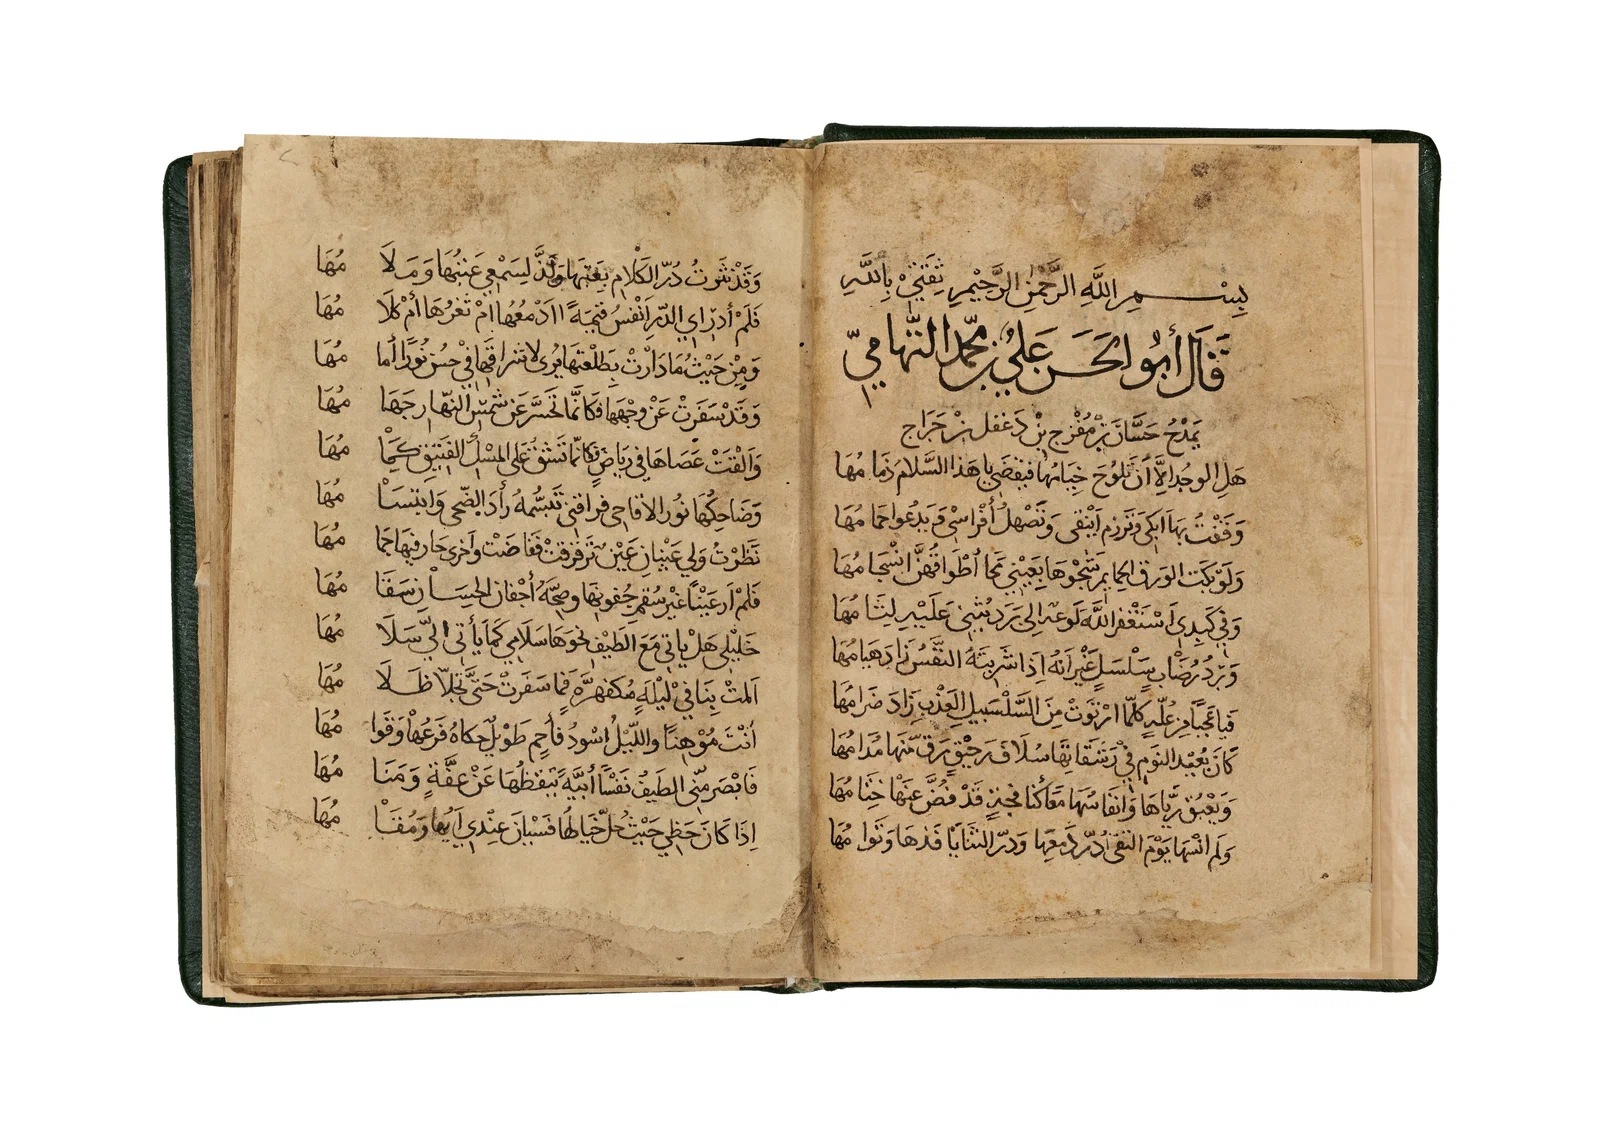 بِسْمِ اللَّهِ الرَّحْمٰنِ الرَّحِيْمِ ثِقَتِيْ بِاللَّهِ
قَالَ أَبُو الْحَسَنِ عَلِيُّ بْنُ مُحَمَّدٍ التِّهَامِيُّ
يَمْدَحُ حَسَّانَ بْنَ مُفَرِّجِ بْنِ دَغْفَلِ بْنِ جَرَاحِ
هَلِ الوجد إلَّا أَنْ تَلُوحَ خِيَامُهَا فيقضى باهذا السَّلَامِ ذِمَامُهَا
وَقَفْتُ بِهَا أبكي وَتَرْزِمُ أَيْنُقِي وَتَصْهَلُ أَفْرَاسِي وَيَدْعُو حَمَامُهَا
وَلَوْ بَكَتِ الوُرْقُ الحمايم شَجْوَهَا بِعَيْنِي مَحَا أَطْوَاقَهُنَّ انْسِجَامُهَا
وَفِي كَبِدِي أَسْتَغْفِرُ اللَّهَ لَوعَةٌ إِلَى بَرَدٍ يُثْنِي عَلَيْهِ لِثَامُهَا
وَبَرْدُ رُضَابٍ سَلْسَلٍ غَيْرَ أَنَّهُ إِذَا شَرِبَتْهُ النَّفْسُ زَادَ هِيَامُهَا
فَيَا عَجَبًا مِنْ غُلَّةٍ كُلَّمَا ارْتَوَتْ مِنَ السَّلْسَبِيلِ العَذْبِ زَادَ ضَرَامُهَا
كَأَنَّ بُعَيْدَ النَّوْمِ فِي رَشَفَاتِهَا سُلَافَ رَحِيْقٍ رَقَّ مِنْهَا مُدَامُهَا
وَيَعْبَقُ رَيَّاهَا وَأَنْفَاسُهَا مَعًا كَنَافِجَةٍ قَدْ فُضَّ عَنْهَا خِتَامُهَا
وَلَمْ أَنْسَهَا يَوْمَ التَقَى دُرُّ دَمْعِهَا وَدُرُّ الثَّنَايَا فَذُّهَا وَتَوَامُهَا
وَقَدْ نَثَرَتْ دُرَّ الكَلَامِ بِعَتْبِهَا وَلَذَّ لِسَمْعِي عَتْبُهَا وَمَلَا مُهَا
فَلَمْ أَدْرِ أَي الدُّرِّ أَنْفَسُ قِيمَةً أَأَدْمُعُهَا أَمْ ثَغْرُهَا أَمْ كَلَا مُهَا
وَمِنْ حَيْثُ مَا دَارَتْ بِطَلْعَتِهَا يُرَى لِإِشْرَاقِهَا فِي حُسْنِ نُورٍ أَمَا مُهَا
وَقَدْ سَفَرَتْ عَنْ وَجْهِهَا فَكَأَنَّمَا تَحَسَّرَ عَنْ شَمْسِ النَّهَارِ جَهَا مُهَا
وَأَلْقَتْ عَصَاهَا فِي رِيَاضٍ كَأَنَّمَا تُشَقُّ عَلَى المِسْكِ الفَتِيقِ كِمَا مُهَا
وَضَاحِكُهَا نُورُ الأَقَاحِي فَرَاقَنِي تَبَسُّمُهُ رَأْدَ الضُّحَى وَابْتِسَا مُهَا
نَظَرْتُ وَلِي عَيْنَانِ عَيْنٌ تَرَقْرَقَتْ فَفَاضَتْ وَأُخْرَى حَارَ فِيهَا جَمَا مُهَا
فَلَمْ أَرَ عَيْنًا غَيْرَ سُقْمِ جُفُونِهَا وَصِحَّةُ أَجْفَانِ الحِسَانِ سَقَا مُهَا
خَلِيلَي هَلْ يَأْتِي مَعَ الطَّيْفِ نَحْوَهَا سَلَامِي كَمَا يَأْتِي إِلَيَّ سَلَا مُهَا
أَلَمَّتْ بِنَا فِي لَيْلَةٍ مُكْفَهِرَّةٍ فَمَا سَفَرَتْ حَتَّى تَجَلَّا ظَلَا مُهَا
أَتَتْ مَوْهِنًا وَاللَّيْلُ أَسْوَدُ فَاحِمٌ طَوِيلٌ حَكَاهُ فَرْعُهَا وَقَوَا مُهَا
فَأَبْصَرَ مِنِّي الطَّيْفُ نَفْسًا أَبِيَّةً تَيَقُّظُهَا عَنْ عِفَّةٍ وَمَنَا مُهَا
إِذَا كَانَ حَظِّي حَيْثُ حُلَّ خَيَالُهَا فَسِيَّانِ عِنْدِي نَأْيُهَا وَمُقَا مُهَا